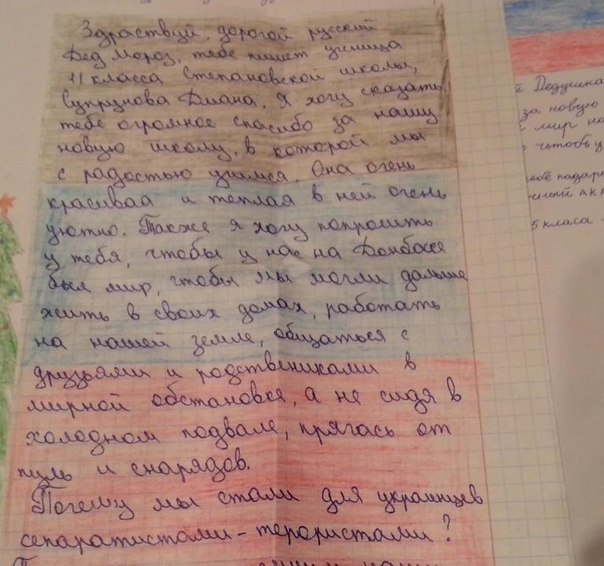 Здраствуй, дорогой русский
Дед Мороз, тебе пишет ученица
11 класса Степановской школы,
Супрунова Диана. Я хочу сказать
тебе огромное спасибо за нашу
новую школу, в которой мы
с радостью учимся. Она очень
красивая и теплая в ней очень
уютно. Также я хочу попросить
у тебя, чтобы у нас на Донбасе
был мир, чтобы мы могли дальше
жить в своих домах, работать
на нашей земле, общаться с
друзьями и родствениками в
мирной обстановке, а не сидя в
холодном подвале, прягась от
пуль и снарядов.
Почему мы стали для украинцев
сепаратистами-терористами?
Дедушка
за новую
мир на
чтобы у
класа